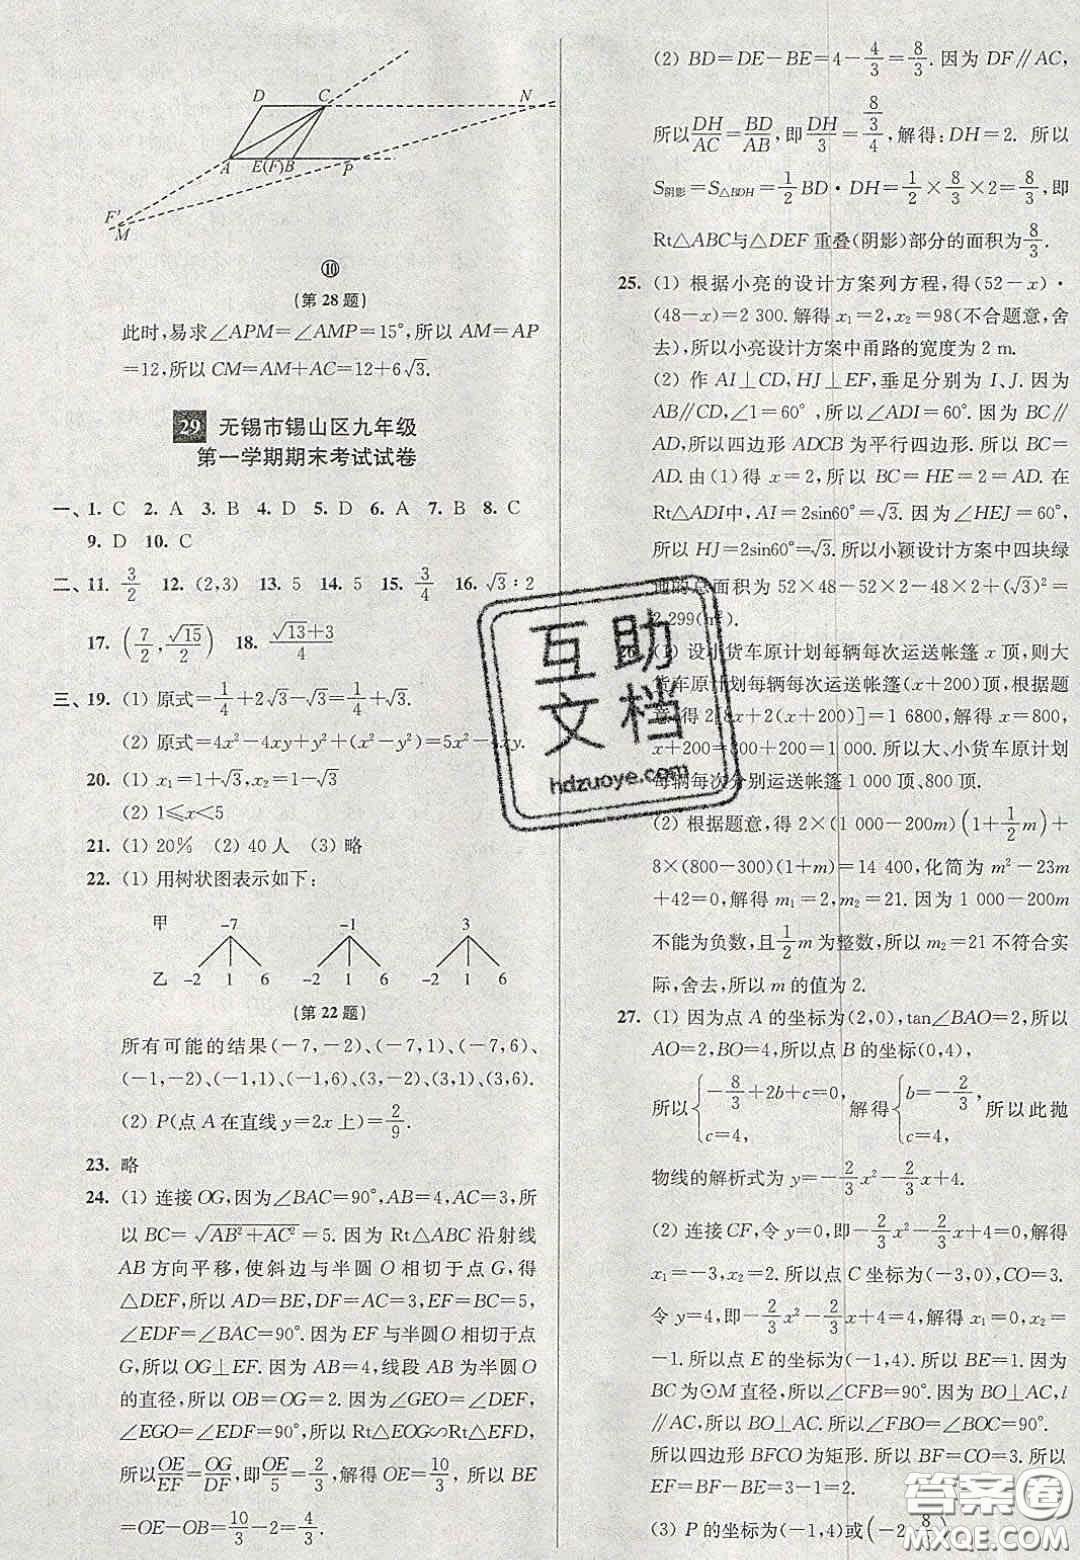 D C N
A E(F) B P
F′
M
⑩
(第 28 题)
此时,易求∠APM=∠AMP=15°,所以 AM=AP
=12,所以 CM=AM+AC=12+6√3.
29 无锡市锡山区九年级
第一学期期末考试试卷
一、1. C 2. A 3. B 4. D 5. D 6. A 7. B 8. C
9. D 10. C
二、11. 3/2 12. (2,3) 13. 5 14. 5 15. 3/4 16. √3∶2
17. (7/2, √15/2) 18. (√13+3)/4
三、19. (1) 原式=1/4+2√3−√3=1/4+√3.
(2) 原式=4x²−4xy+y²+(x²−y²)=5x²−4xy.
20. (1) x₁=1+√3,x₂=1−√3
(2) 1≤x<5
21. (1) 20% (2) 40 人 (3) 略
22. (1) 用树状图表示如下:
甲 −7 −1 3
乙 −2 1 6 −2 1 6 −2 1 6
(第 22 题)
所有可能的结果(−7,−2)、(−7,1)、(−7,6)、
(−1,−2)、(−1,1)、(−1,6)、(3,−2)、(3,1)、(3,6).
(2) P(点 A 在直线 y=2x 上)=2/9.
23. 略
24. (1) 连接 OG,因为∠BAC=90°,AB=4,AC=3,所
以 BC=√(AB²+AC²)=5. 因为 Rt△ABC 沿射线
AB 方向平移,使斜边与半圆 O 相切于点 G,得
△DEF,所以 AD=BE,DF=AC=3,EF=BC=5,
∠EDF=∠BAC=90°. 因为 EF 与半圆 O 相切于点
G,所以 OG⊥EF. 因为 AB=4,线段 AB 为半圆 O
的直径,所以 OB=OG=2. 因为∠GEO=∠DEF,
∠EGO=∠EDF=90°,所以 Rt△EOG∽Rt△EFD,
所以OE/EF=OG/DF,即OE/5=2/3,解得 OE=10/3,所以 BE
=OE−OB=10/3−2=4/3.
(2) BD=DE−BE=4−4/3=8/3. 因为 DF∥AC,
所以DH/AC=BD/AB,即DH/3=(8/3)/4,解得:DH=2. 所以
S阴影=S△BDH=1/2 BD・DH=1/2×8/3×2=8/3,即
Rt△ABC与△DEF 重叠(阴影)部分的面积为8/3.
25. (1) 根据小亮的设计方案列方程,得(52−x)・
(48−x)=2 300. 解得 x₁=2,x₂=98(不合题意,舍
去),所以小亮设计方案中甬路的宽度为 2 m.
(2) 作 AI⊥CD,HJ⊥EF,垂足分别为 I、J. 因为
AB∥CD,∠1=60°,所以∠ADI=60°. 因为 BC∥
AD,所以四边形 ADCB 为平行四边形. 所以 BC=
AD. 由(1)得 x=2,所以 BC=HE=2=AD. 在
Rt△ADI中,AI=2sin60°=√3. 因为∠HEJ=60°,
所以 HJ=2sin60°=√3. 所以小颖设计方案中四块绿
地的总面积为 52×48−52×2−48×2+(√3)²=
2 299(m²).
(1) 设小货车原计划每辆每次运送帐篷 x 顶,则大
货车原计划每辆每次运送帐篷(x+200)顶,根据题
得 2[8x+2(x+200)]=1 6800,解得 x=800,
x+200=800+200=1 000. 所以大、小货车原计划
每辆每次分别运送帐篷 1 000 顶、800 顶.
(2) 根据题意,得 2×(1 000−200m)(1+1/2 m)+
8×(800−300)(1+m)=14 400,化简为 m²−23m
+42=0,解得 m₁=2,m₂=21. 因为 1 000−200m
不能为负数,且1/2 m 为整数,所以 m₂=21 不符合实
际,舍去,所以 m 的值为 2.
27. (1) 因为点 A 的坐标为(2,0),tan∠BAO=2,所以
AO=2,BO=4,所以点 B 的坐标(0,4),
所以{−8/3+2b+c=0, c=4, 解得{b=−2/3, c=4, 所以此抛
物线的解析式为 y=−2/3x²−2/3x+4.
(2) 连接 CF,令 y=0,即−2/3x²−2/3x+4=0,解得
x₁=−3,x₂=2. 所以点 C 坐标为(−3,0),CO=3.
令 y=4,即−2/3x²−2/3x+4=4,解得 x₁=0,x₂=
−1. 所以点 E 的坐标为(−1,4). 所以 BE=1. 因为
BC 为⊙M 直径,所以∠CFB=90°. 因为 BO⊥AC,l
∥AC,所以 BO⊥AC. 所以∠FBO=∠BOC=90°.
所以四边形 BFCO 为矩形. 所以 BF=CO=3. 所以
EF=BF−BE=3−1=2.
(3) P 的坐标为(−1,4)或(−2 8
互助
文档
hdzuoye.com
答案圈
MXQE.COM